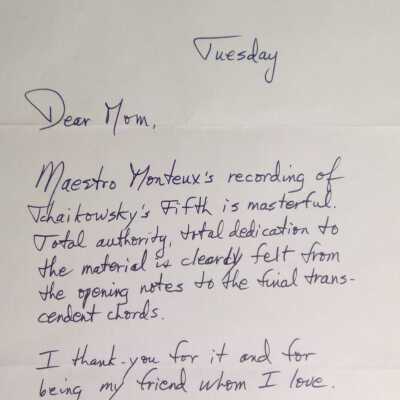 Tuesday
Dear Mom,
Maestro Monteux's recording of
Tchaikowsky's Fifth is masterful.
Total authority, total dedication to
the material is clearly felt from
the opening notes to the final trans-
cendent chords.
I thank-you for it and for
being my friend whom I love.